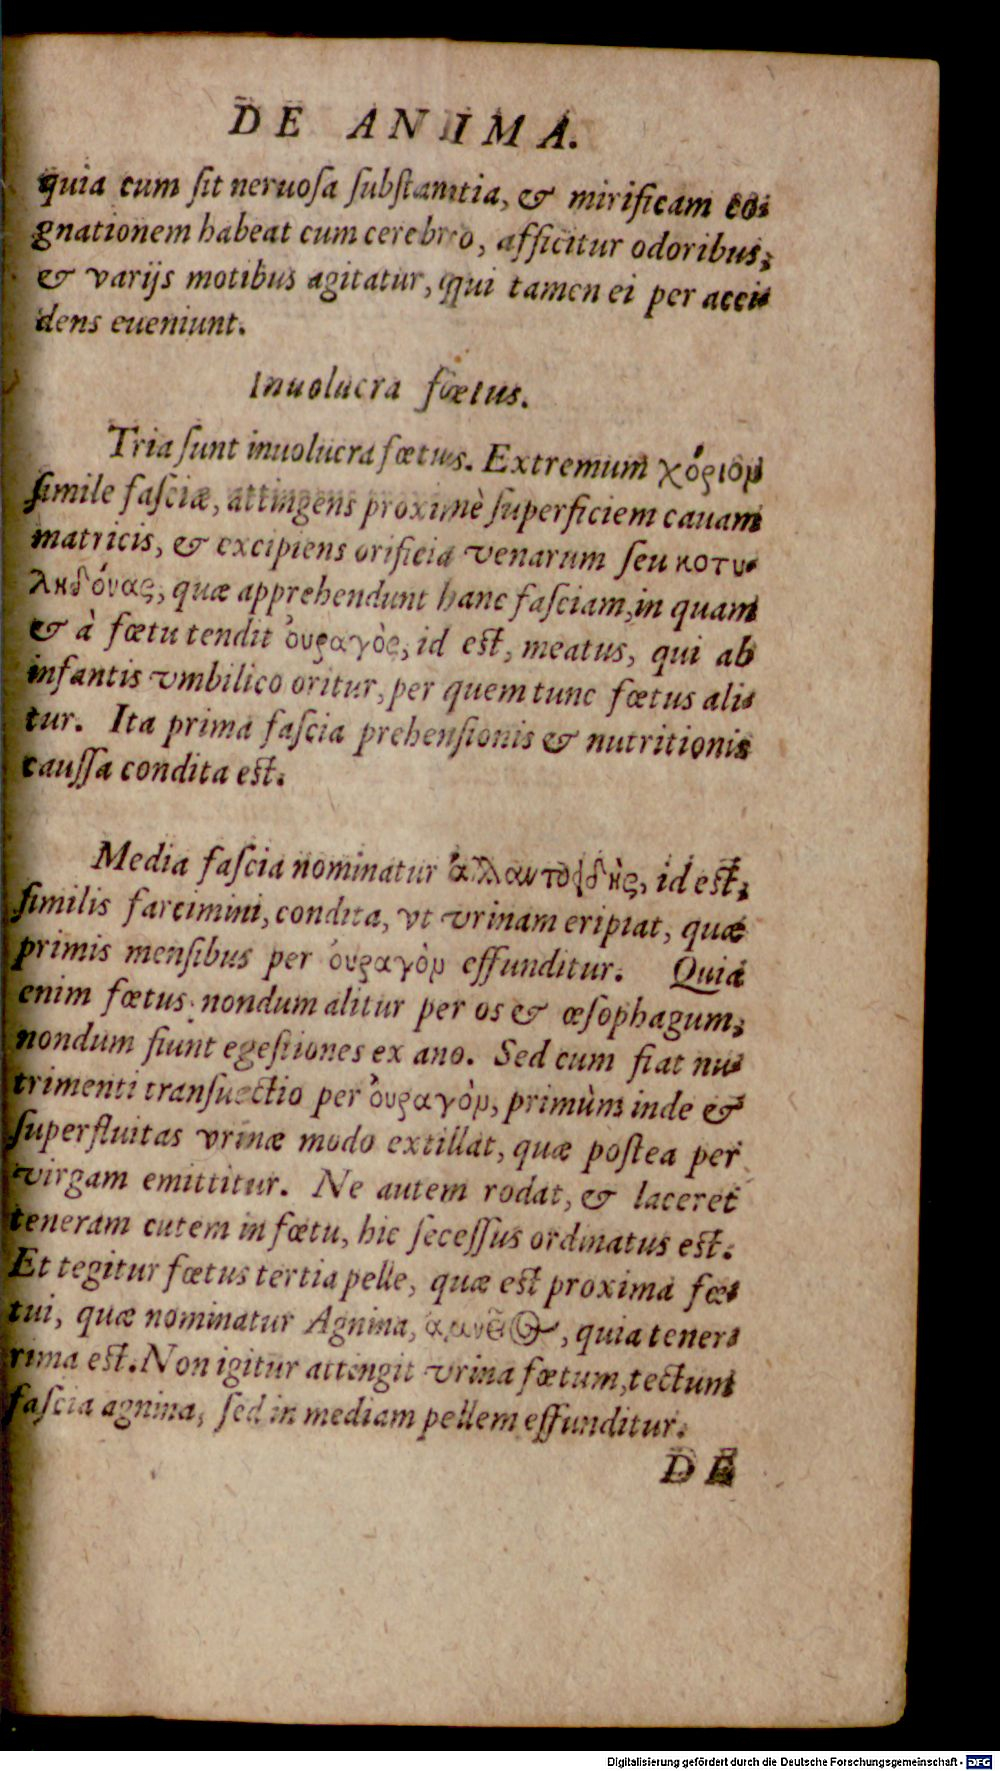 DE ANIMA.
quia cum ſit neruoſa ſubſtantia, & mirificam co-
gnationem habeat cum cerebro, afficitur odoribus,
& varijs motibus agitatur, qui tamen ei per acci-
dens eueniunt.
Inuolucra fœtus.
Tria ſunt inuolucra fœtus. Extremum χόριον
ſimile faſciæ, attingens proximè ſuperficiem cauam
matricis, & excipiens orificia venarum ſeu κοτυ-
ληδόνας, quæ apprehendunt hanc faſciam, in quam
& à fœtu tendit ὀυραγὸς, id est, meatus, qui ab
infantis vmbilico oritur, per quem tunc fœtus ali-
tur. Ita prima faſcia prehenſionis & nutritionis
cauſſa condita est.
Media faſcia nominatur ἀλλαντοειδὴς, id est,
ſimilis farcimini, condita, vt vrinam eripiat, quæ
primis menſibus per ὀυραγὸν effunditur. Quia
enim fœtus nondum alitur per os & œſophagum,
nondum fiunt egeſtiones ex ano. Sed cum fiat nu-
trimenti tranſuectio per ὀυραγὸν, primùm inde &
ſuperfluitas vrinæ modo extillat, quæ poſtea per
virgam emittitur. Ne autem rodat, & laceret
teneram cutem in fœtu, hic ſeceſſus ordinatus est.
Et tegitur fœtus tertia pelle, quæ est proxima fœ-
tui, quæ nominatur Agnina, quia tener-
rima est. Non igitur attingit vrina fœtum, tectum
faſcia agnina, ſed in mediam pellem effunditur.
DE
Digitalisierung gefördert durch die Deutsche Forschungsgemeinschaft - DFG